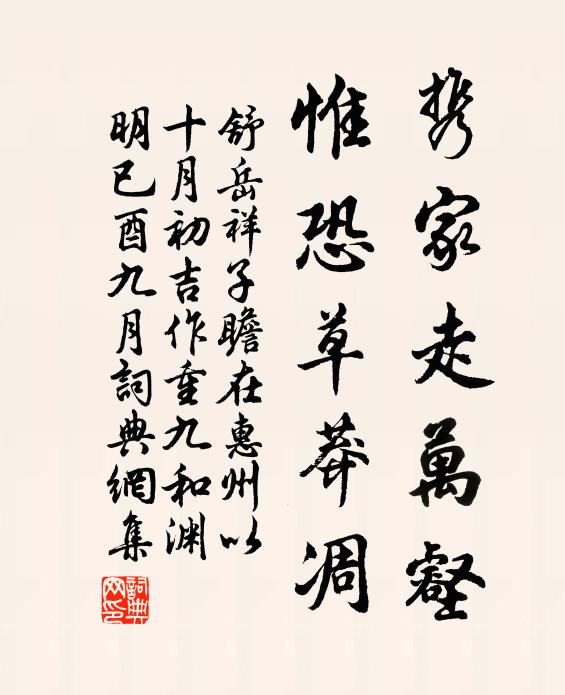 携家走萬壑
惟恐草莽凋
舒岳祥子瞻在惠州以
十月初吉作重九和渊
明已酉九月詞典網集
詞典网印